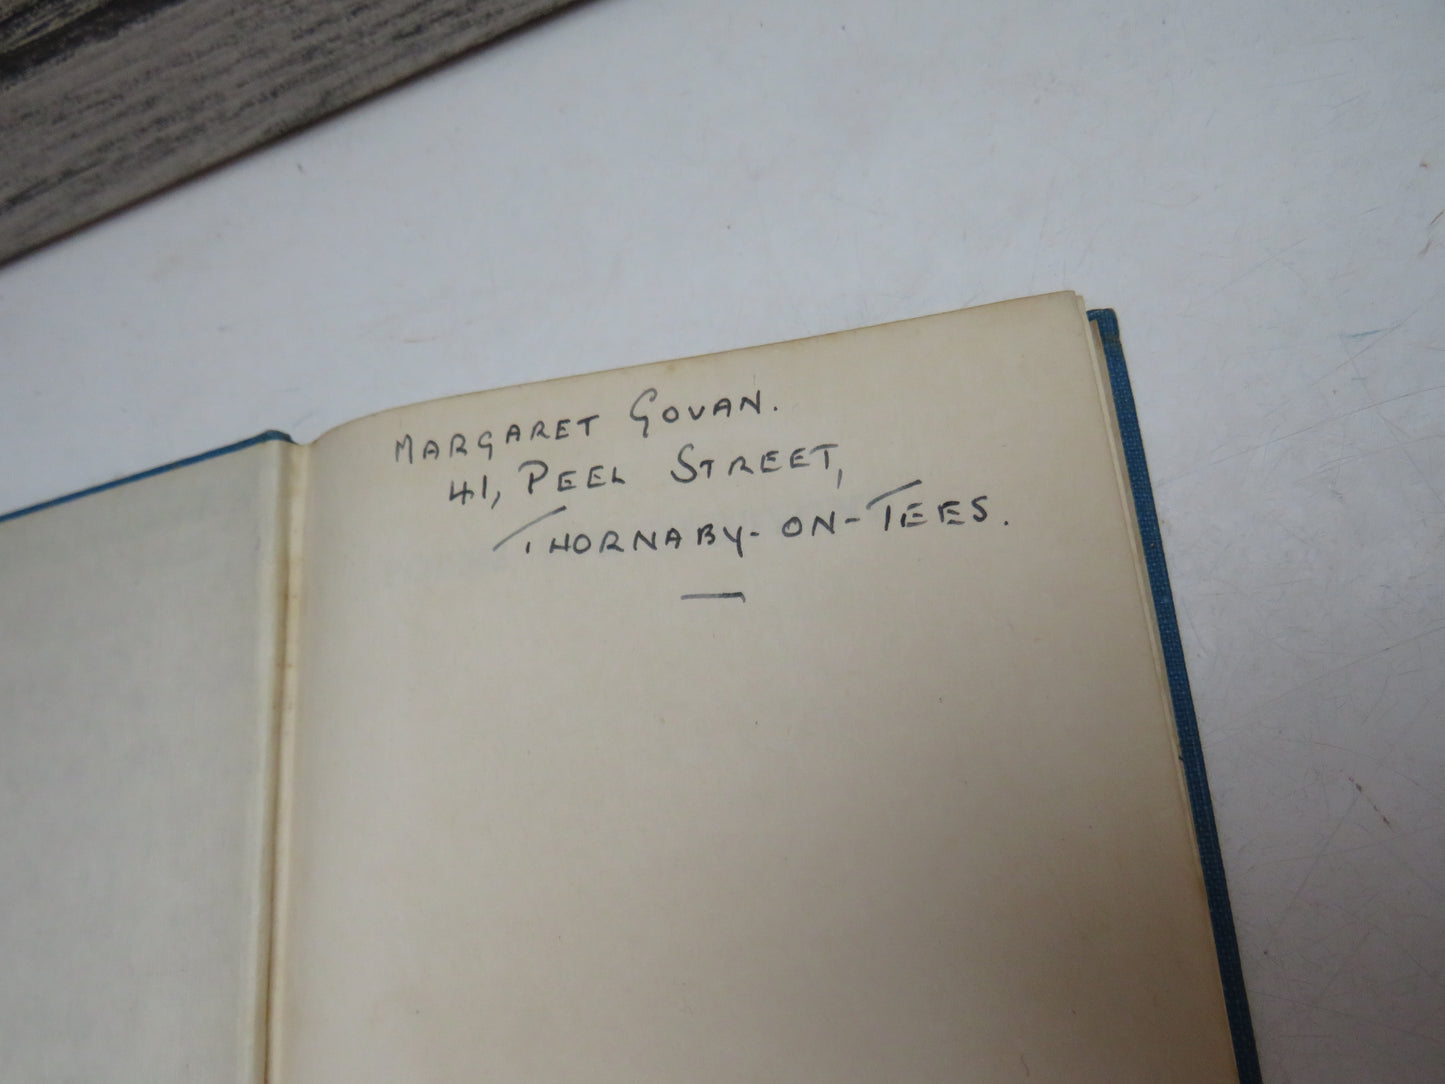 MARGARET GOVAN.
41, PEEL STREET,
THORNABY-ON-TEES.